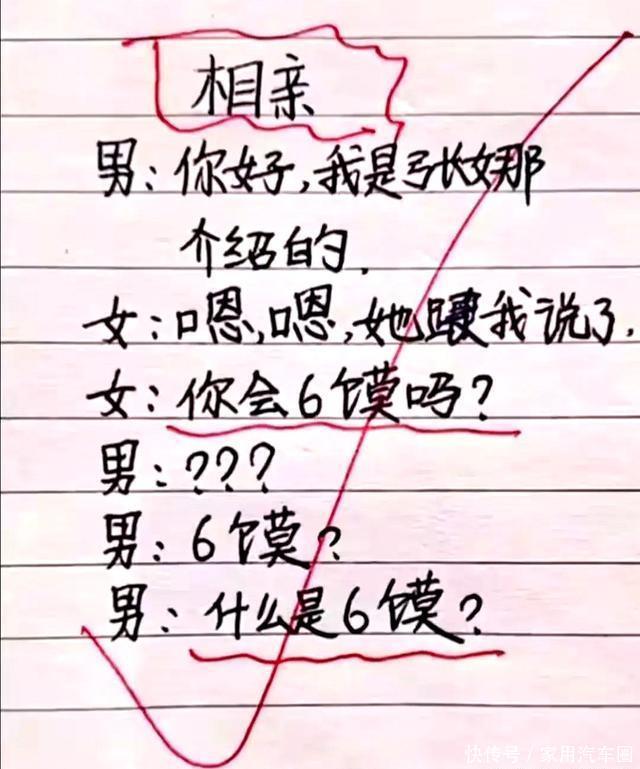 相亲
男：你好，我是张娜
介绍的．
女：嗯，嗯，她跟我说了．
女：你会6馍吗？
男：？？？
男：6馍？
男：什么是6馍？
快传号／家用汽车圈